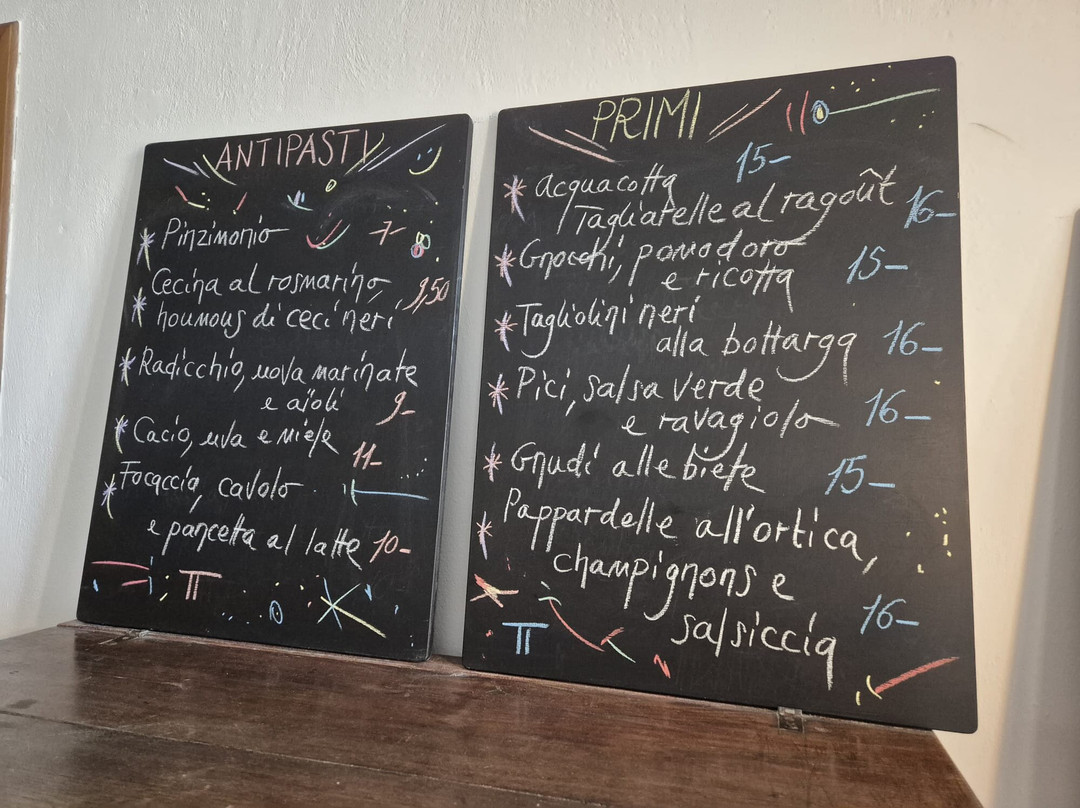 ANTIPASTI
Pinzimonio 7-
Cecina al rosmarino,
houmous di ceci neri 9,50
Radicchio, uova marinate
e aioli 9-
Cacio, uva e miele 11-
Focaccia, cavolo
e pancetta al latte 10-
PRIMI
Acquacotta 15-
Tagliatelle al ragoût 16-
Gnocchi, pomodoro
e ricotta 15-
Tagliolini neri
alla bottarga 16-
Pici, salsa verde
e ravagiolo 16-
Gnudi alle biete 15-
Pappardelle all'ortica,
champignons e
salsiccia 16-